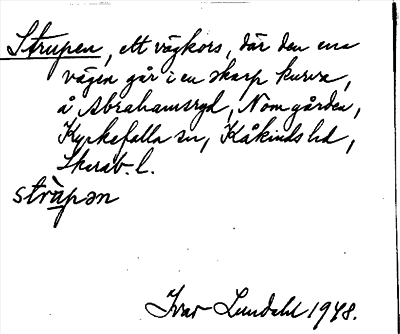 Strupen, ett vägkors, där den ena
vägen går i en skarp kurva,
å Abrahamsryd, Nomgården,
Kyrkefalla sn, Kåkinds hd,
Skarab. l.
strùpən
Ivar Lundahl 1948.